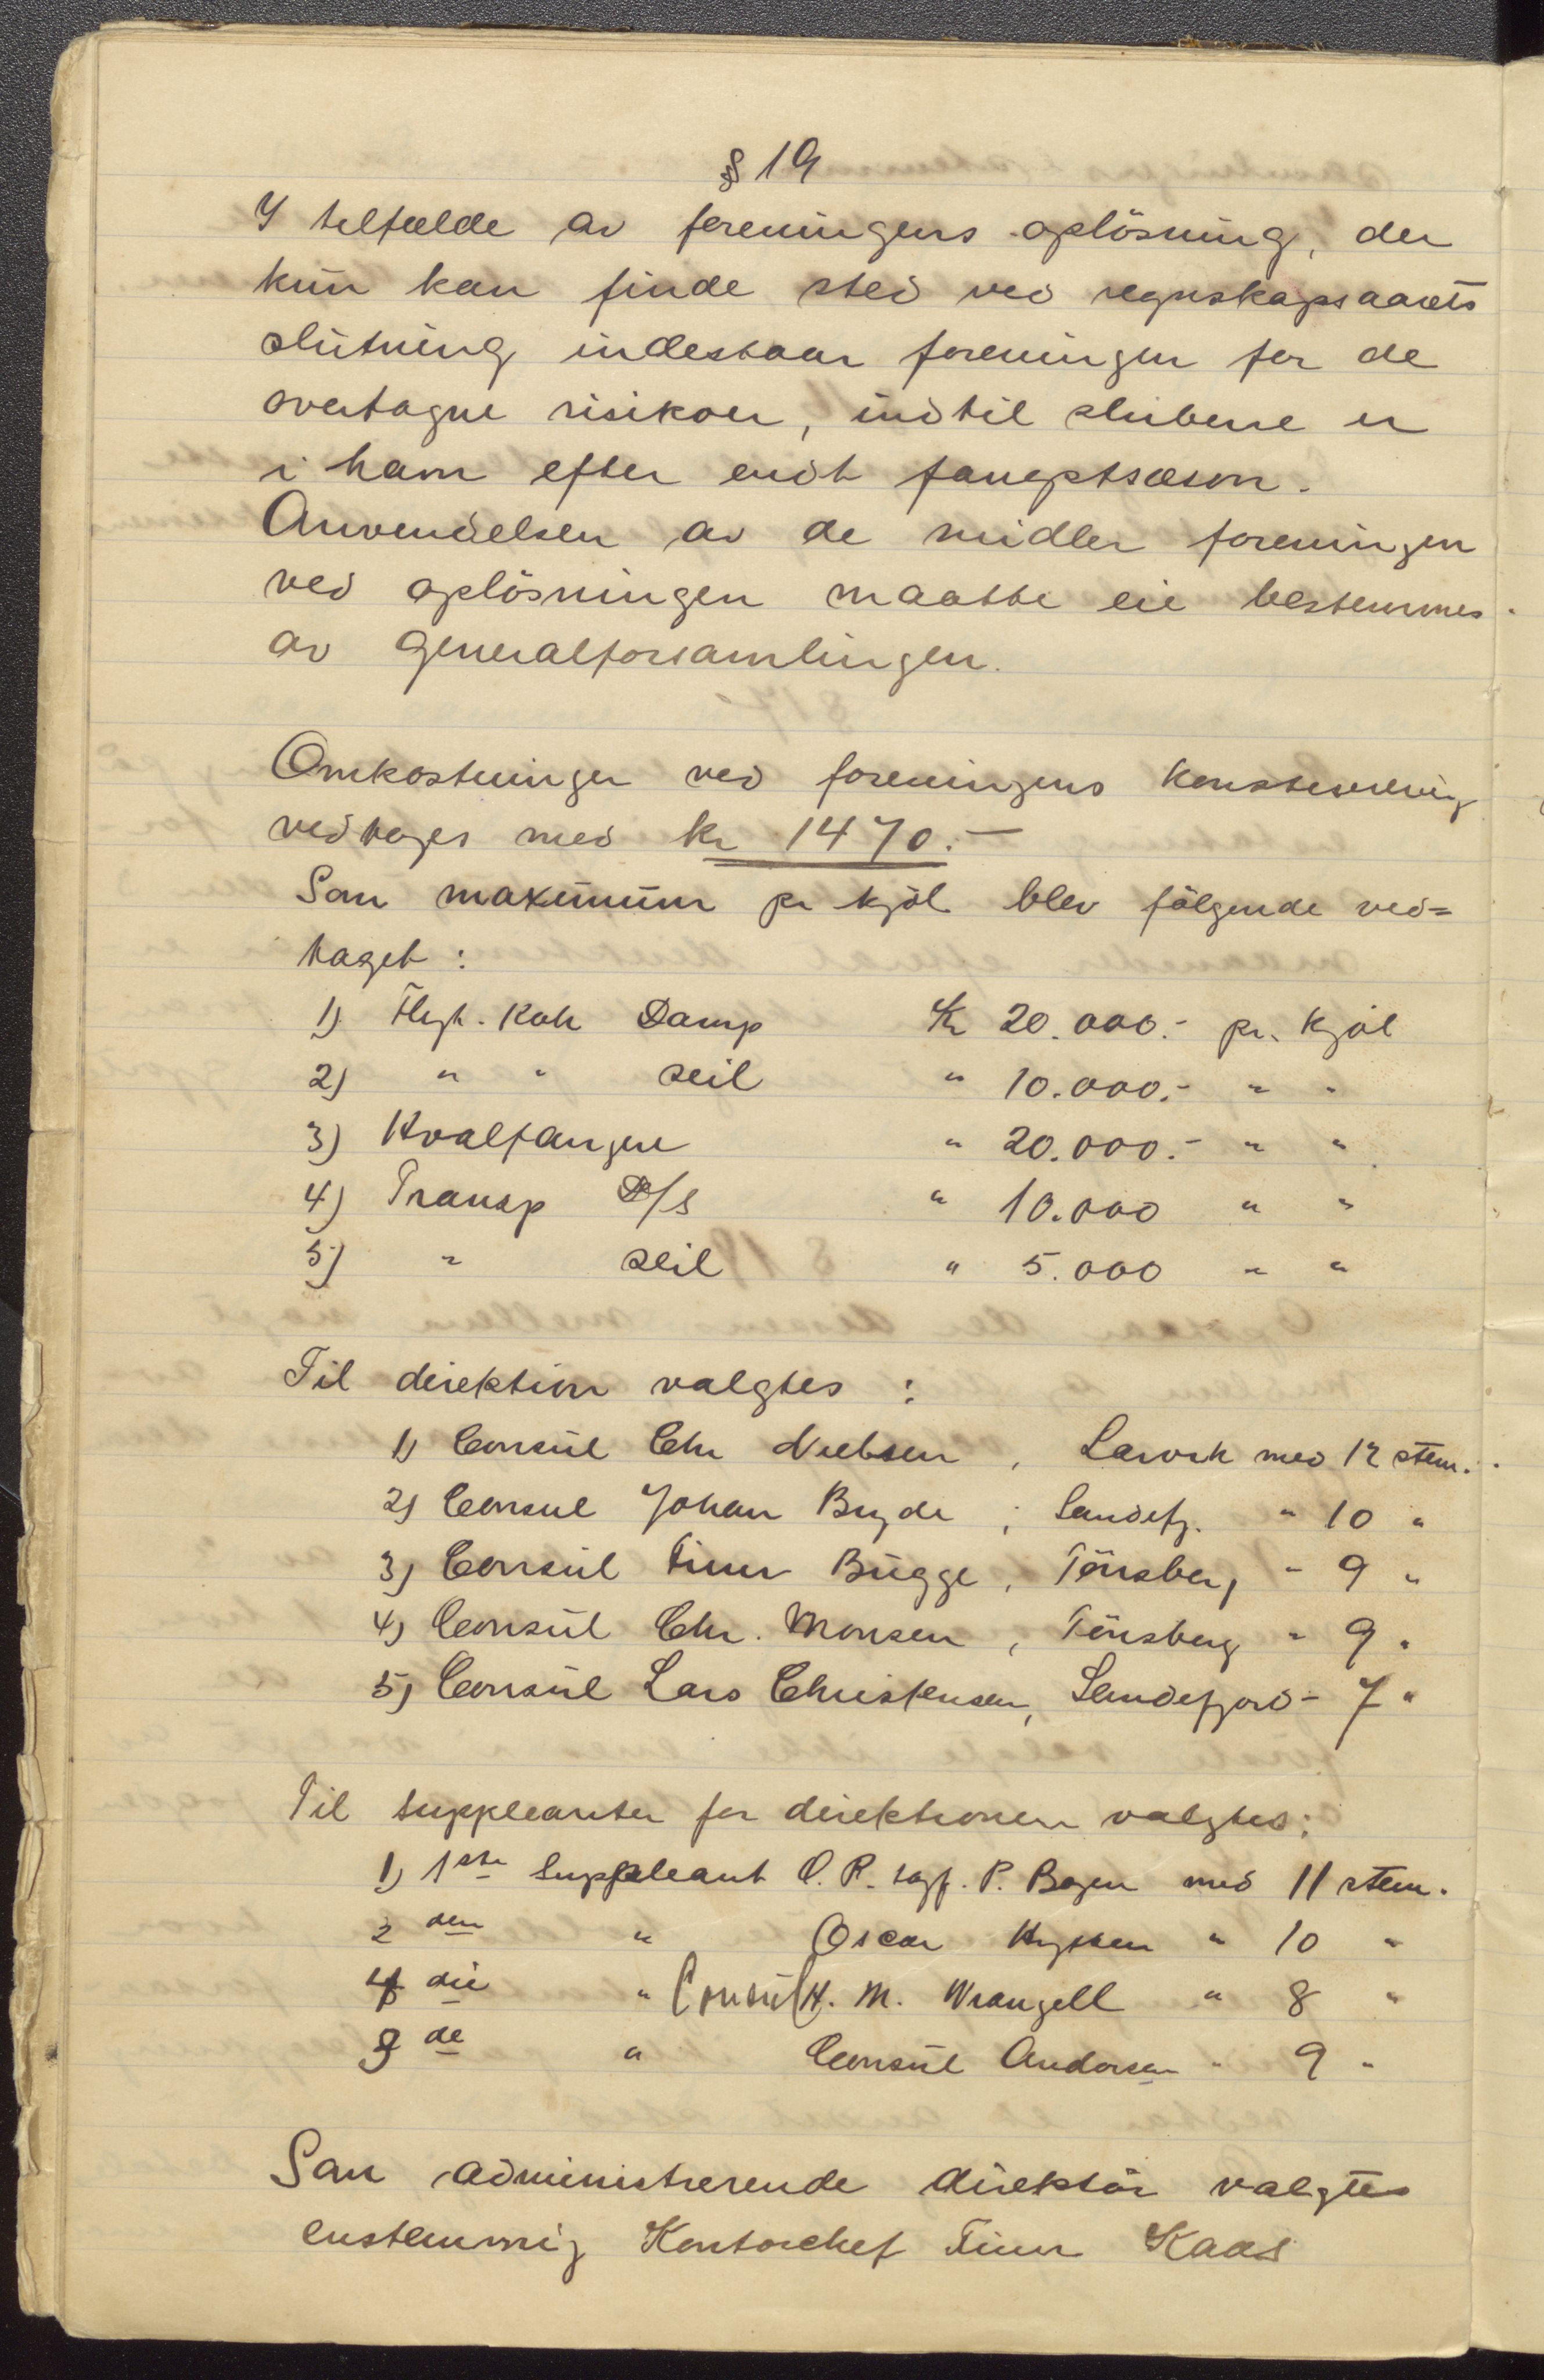 § 19
I tilfælde av foreningens oplösning, der
kun kan finde sted ved regnskapsaarets
slutning indestaar foreningen for de
overtagne risikoer, indtil skibene er
i havn efter endt fangstsæson.
Anvendelsen av de midler foreningen
ved oplösningen maatte eie bestemmes
av generalforsamlingen.
Omkostninger ved foreningens konstituering
vedtages med kr 1470.-
Som maximum pr kjöl blev fölgende ved=
taget:
1) Flyt. Kok Damp Kr 20.000.- pr. kjöl
2) " " seil " 10.000.- " "
3) Hvalfangere " 20.000.- " "
4) Transp D/S " 10.000 " "
5) " seil " 5.000 " "
Til direktion valgtes:
1) Consul Chr Nielsen, Larvik med 12 stem.
2) Consul Johan Bryde, Sandefj. " 10 "
3) Consul Finn Bugge, Tönsberg " 9 "
4) Consul Chr. Monsen, Tönsberg " 9 "
5) Consul Lars Christensen, Sandefjord - 7 "
Til suppleanter for direktionen valgtes:
1) 1ste Suppleant O. R. sagf. P. Bogen med 11 stem.
2 den " Oscar Hytten " 10 "
4 die " Consul H. M. Wrangell " 8 "
3 de " Consul Andorsen " 9 "
Som administrerende direktör valgtes
enstemmig Kontorchef Finn Kaas